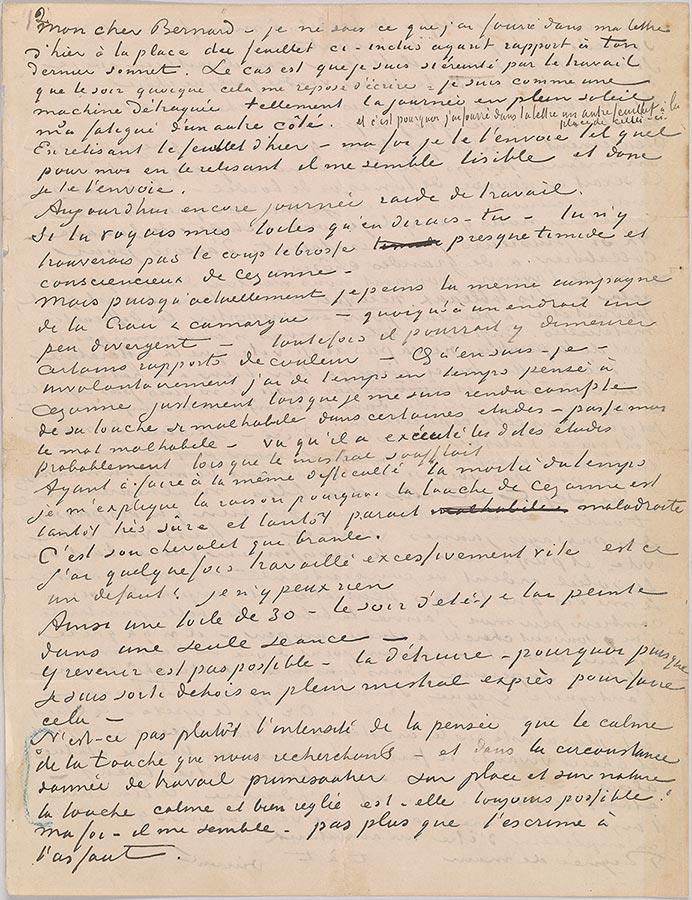 12
mon cher Bernard – je ne sais ce que j'ai fourré dans ma lettre
d'hier à la place du feuillet ci-inclus ayant rapport à ton
dernier sonnet. Le cas est que je suis si éreinté par le travail
que le soir quoique cela me repose d'écrire – je suis comme une
machine détraquée tellement la journée en plein soleil
m'a fatigué d'un autre côté. et c'est pourquoi j'ai fourré dans la lettre un autre feuillet à la
place de celui-ci
En relisant le feuillet d'hier – ma foi je te l'envoie tel quel
pour moi en le relisant il me semble lisible et donc
je te l'envoie.
Aujourd'hui encore journée raide de travail.
Si tu voyais mes toiles qu'en dirais-tu – tu n'y
trouverais pas le coup de brosse presque timide et
consciencieux de Cezanne –
Mais puisqu'actuellement je peins la même campagne
de la Crau & camargue – quoiqu'à un endroit un
peu divergent – toutefois il pourrait y demeurer
certains rapports de couleur – Qu'en sais-je –
involontairement j'ai de temps en temps pensé à
Cezanne justement lorsque je me suis rendu compte
de sa touche si malhabile dans certaines etudes – passe moi
le mot malhabile – vu qu'il a exécuté les dites études
probablement lorsque le mistral soufflait
Ayant à faire à la même difficulté la moitié du temps
je m'explique la raison pourquoi la touche de Cezanne est
tantôt très sûre et tantôt parait malhabile maladroite
C'est son chevalet que branle.
J'ai quelquefois travaillé excessivement vite est ce
un defaut? je n'y peux rien
Ainsi une toile de 30 – le soir d'été je l'ai peinte
dans une seule seance –
Y revenir est pas possible – la détruire – pourquoi puisque
je suis sorti dehors en plein mistral exprès pour faire
cela –
N'est-ce pas plutôt l'intensité de la pensée que le calme
de la touche que nous recherchons – et dans la circonstance
donnée de travail primesautier sur place et sur nature
la touche calme et bien reglée est-elle toujours possible?
Ma foi – il me semble – pas plus que l'escrime à
l'assaut.